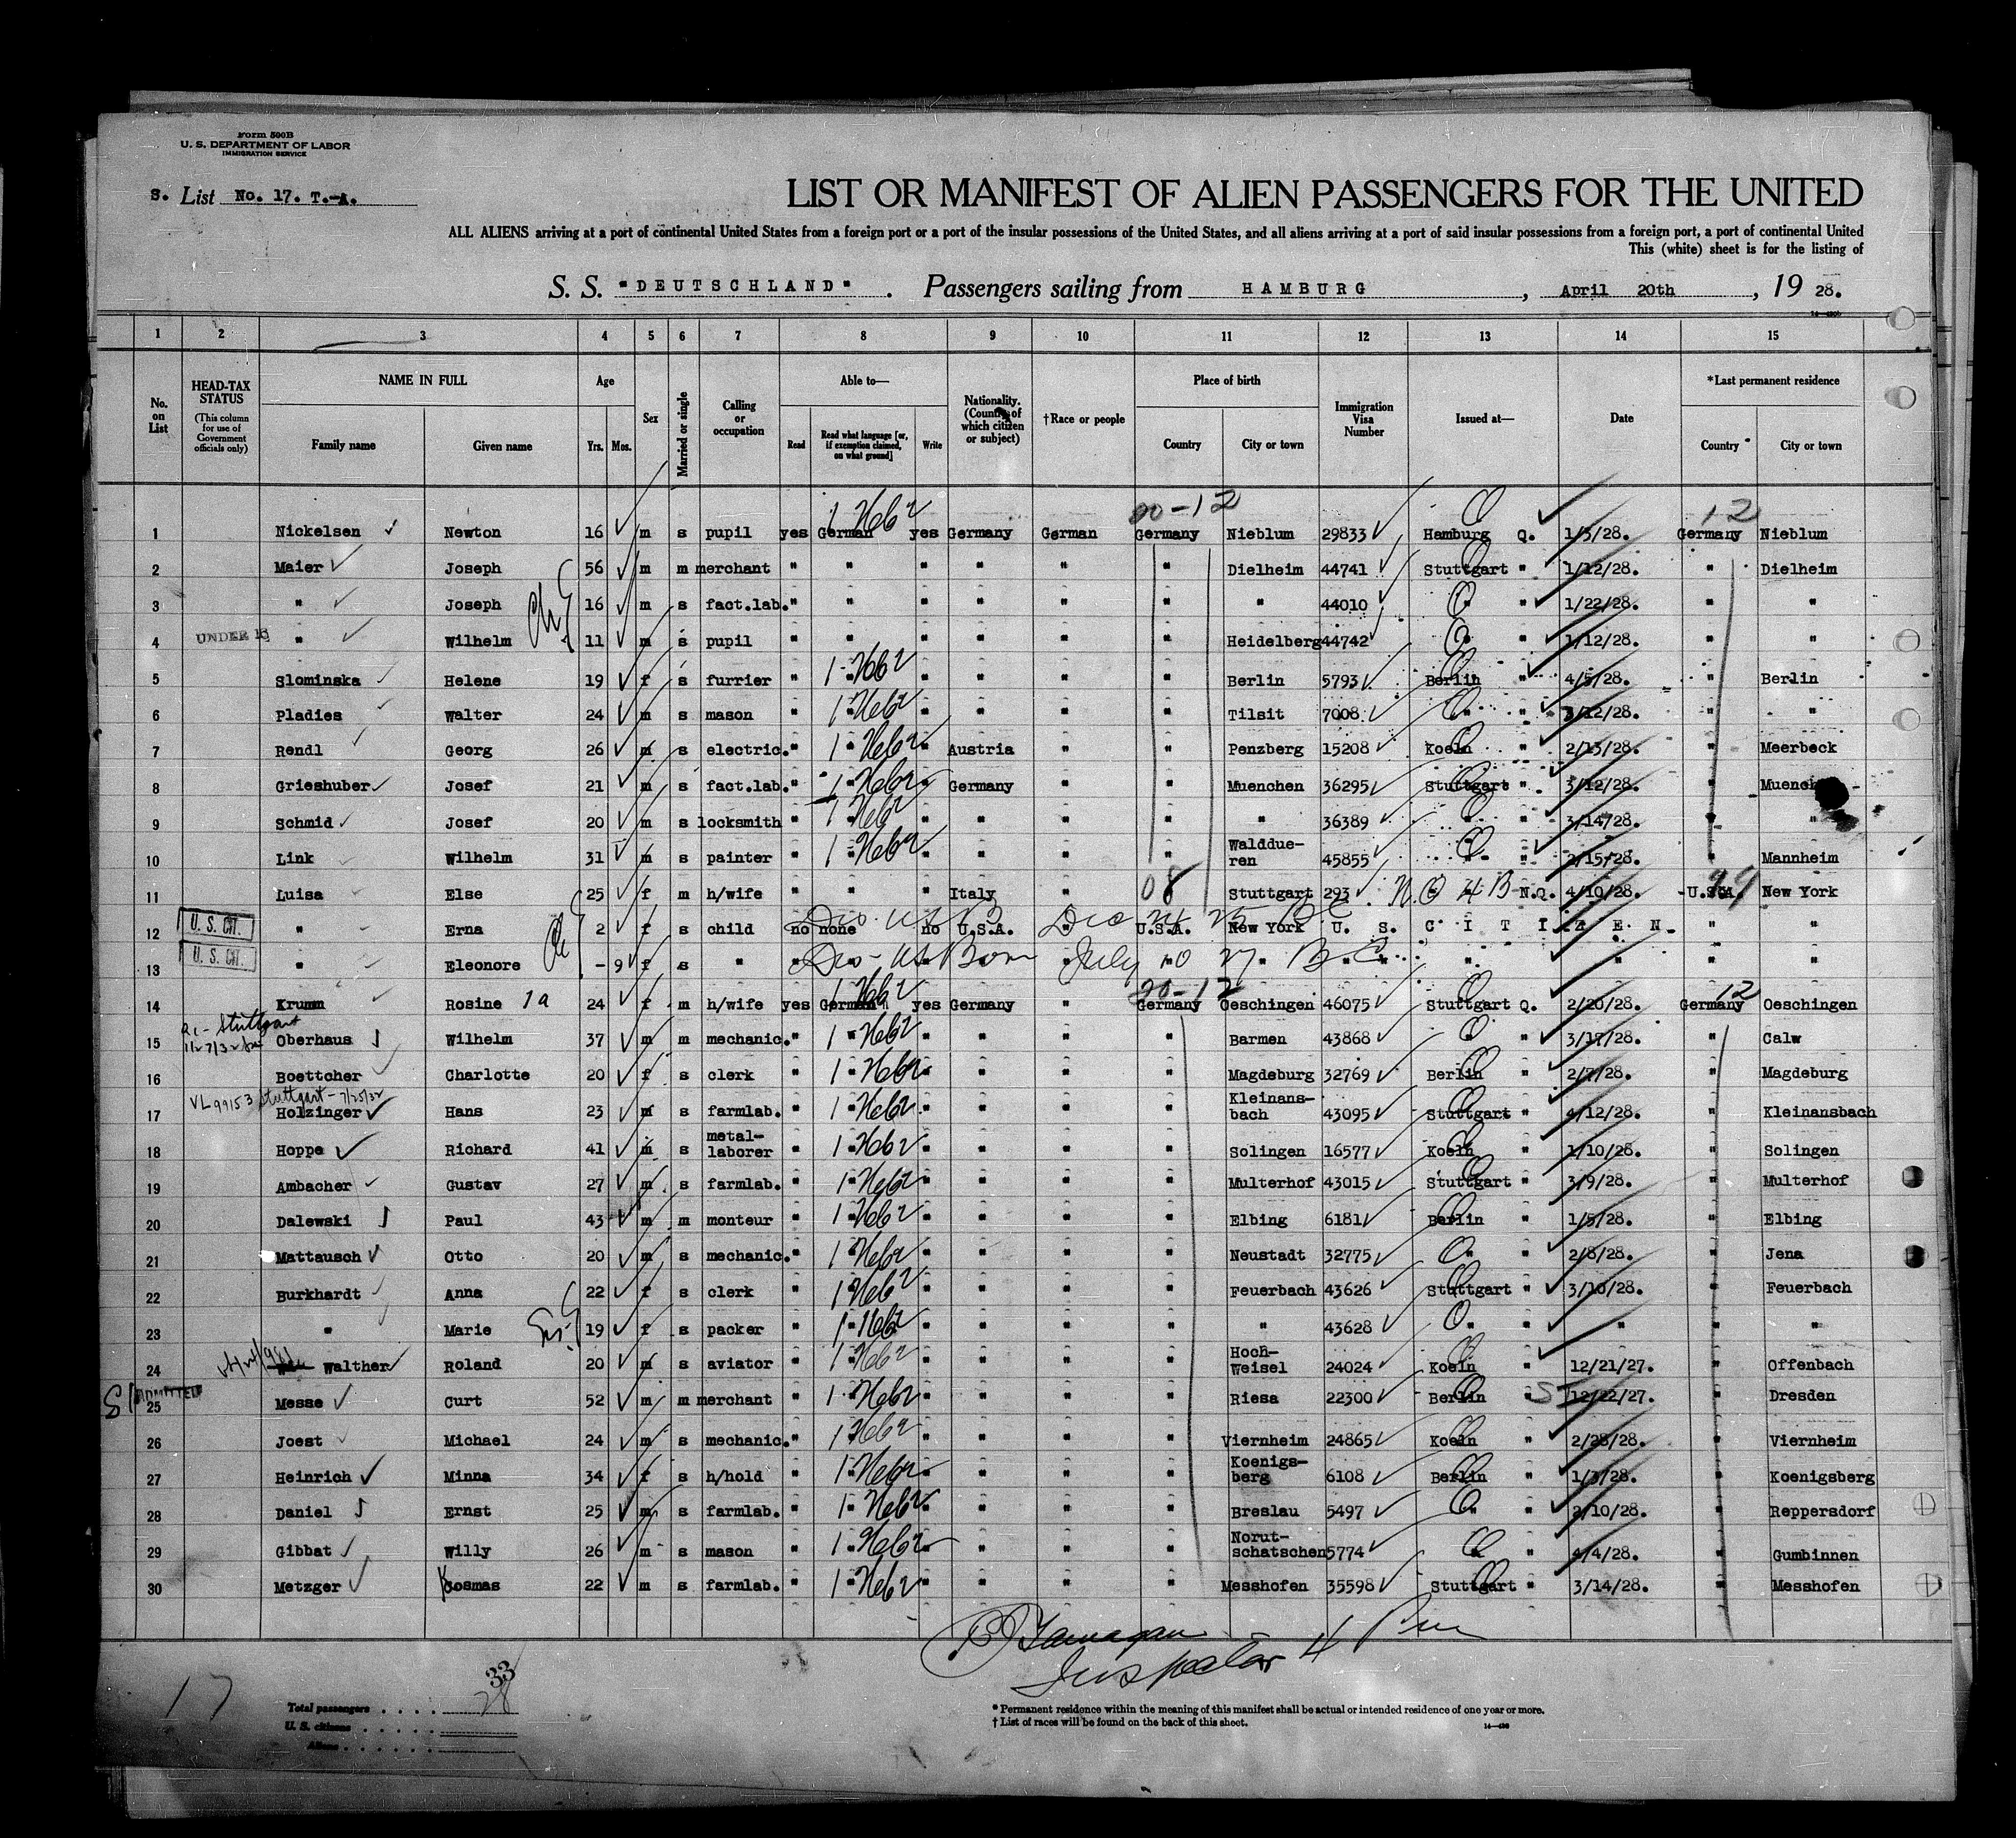 Form 500B
U. S. DEPARTMENT OF LABOR
IMMIGRATION SERVICE
S. List No. 17. T.-A.
LIST OR MANIFEST OF ALIEN PASSENGERS FOR THE UNITED
ALL ALIENS arriving at a port of continental United States from a foreign port or a port of the insular possessions of the United States, and all aliens arriving at a port of said insular possessions from a foreign port, a port of continental United
This (white) sheet is for the listing of
S. S. "DEUTSCHLAND". Passengers sailing from HAMBURG, April 20th, 19 28.
1 2 3 4 5 6 7 8 9 10 11 12 13 14 15
No. on List
HEAD-TAX STATUS (This column for use of Government officials only)
NAME IN FULL Family name Given name
Age Yrs. Mos.
Sex
Married or single
Calling or occupation
Able to— Read Read what language [or, if exemption claimed, on what ground] Write
Nationality. (Country of which citizen or subject)
†Race or people
Place of birth Country City or town
Immigration Visa Number
Issued at—
Date
*Last permanent residence Country City or town
00-12 12
1 Nickelsen Newton 16 m s pupil yes German yes Germany German Germany Nieblum 29833 Hamburg Q. 1/3/28. Germany Nieblum
2 Maier Joseph 56 m m merchant " " " " " " Dielheim 44741 Stuttgart " 1/12/28. " Dielheim
3 " Joseph 16 m s fact.lab. " " " " " " " 44010 " " 1/22/28. " "
4 UNDER 16 " Wilhelm 11 m s pupil " " " " " " Heidelberg 44742 " " 1/12/28. " "
5 Slominska Helene 19 f s furrier " " " " " " Berlin 5793 Berlin " 4/5/28. " Berlin
6 Pladies Walter 24 m s mason " " " " " " Tilsit 7008 " " 3/12/28. " "
7 Rendl Georg 26 m s electric. " " " Austria " " Penzberg 15208 Koeln " 2/13/28. " Meerbeck
8 Grieshuber Josef 21 m s fact.lab. " " " Germany " " Muenchen 36295 Stuttgart " 3/12/28. " Muench
9 Schmid Josef 20 m s locksmith " " " " " " " 36389 " " 3/14/28. " "
10 Link Wilhelm 31 m s painter " " " " " " Walddue-ren 45855 " " 2/15/28. " Mannheim
11 Luisa Else 25 f m h/wife " " " Italy " 08 Stuttgart 293 " N.Q. 4/10/28. U.S.A. 99 New York
12 U. S. CIT. " Erna 2 f s child no none no U.S.A. " U.S.A. New York U. S. CITIZEN " "
13 U. S. CIT. " Eleonore -9 f s " " " " " " " " " " "
00-12 12
14 Krumm Rosine 1a 24 f m h/wife yes German yes Germany " Germany Oeschingen 46075 Stuttgart Q. 2/20/28. Germany Oeschingen
15 Oberhaus Wilhelm 37 m m mechanic. " " " " " " Barmen 43868 " " 3/17/28. " Calw
16 Boettcher Charlotte 20 f s clerk " " " " " " Magdeburg 32769 Berlin " 2/7/28. " Magdeburg
VL 99153 Stuttgart - 7/25/32
17 Holzinger Hans 23 m s farmlab. " " " " " " Kleinans-bach 43095 Stuttgart " 4/12/28. " Kleinansbach
18 Hoppe Richard 41 m s metal-laborer " " " " " " Solingen 16577 Koeln " 1/10/28. " Solingen
19 Ambacher Gustav 27 m s farmlab. " " " " " " Multerhof 43015 Stuttgart " 3/9/28. " Multerhof
20 Dalewski Paul 43 m m monteur " " " " " " Elbing 6181 Berlin " 1/5/28. " Elbing
21 Mattausch Otto 20 m s mechanic. " " " " " " Neustadt 32775 " " 2/8/28. " Jena
22 Burkhardt Anna 22 f s clerk " " " " " " Feuerbach 43626 Stuttgart " 3/10/28. " Feuerbach
23 " Marie 19 f s packer " " " " " " " 43628 " " " " "
24 Walther Roland 20 m s aviator " " " " " " Hoch-Weisel 24024 Koeln " 12/21/27. " Offenbach
25 ADMITTED Messe Curt 52 m m merchant " " " " " " Riesa 22300 Berlin " 12/22/27. " Dresden
26 Joest Michael 24 m s mechanic. " " " " " " Viernheim 24865 Koeln " 2/28/28. " Viernheim
27 Heinrich Minna 34 f s h/hold " " " " " " Koenigs-berg 6108 Berlin " 1/3/28. " Koenigsberg
28 Daniel Ernst 25 m s farmlab. " " " " " " Breslau 5497 " " 2/10/28. " Reppersdorf
29 Gibbat Willy 26 m s mason " " " " " " Norut-schatschen 5774 " " 4/4/28. " Gumbinnen
30 Metzger Kosmas 22 m s farmlab. " " " " " " Messhofen 35598 Stuttgart " 3/14/28. " Messhofen
Inspector
17
33
28
Total passengers . . . .
U. S. citizens . . . . .
Aliens . . . . . .
* Permanent residence within the meaning of this manifest shall be actual or intended residence of one year or more.
† List of races will be found on the back of this sheet.